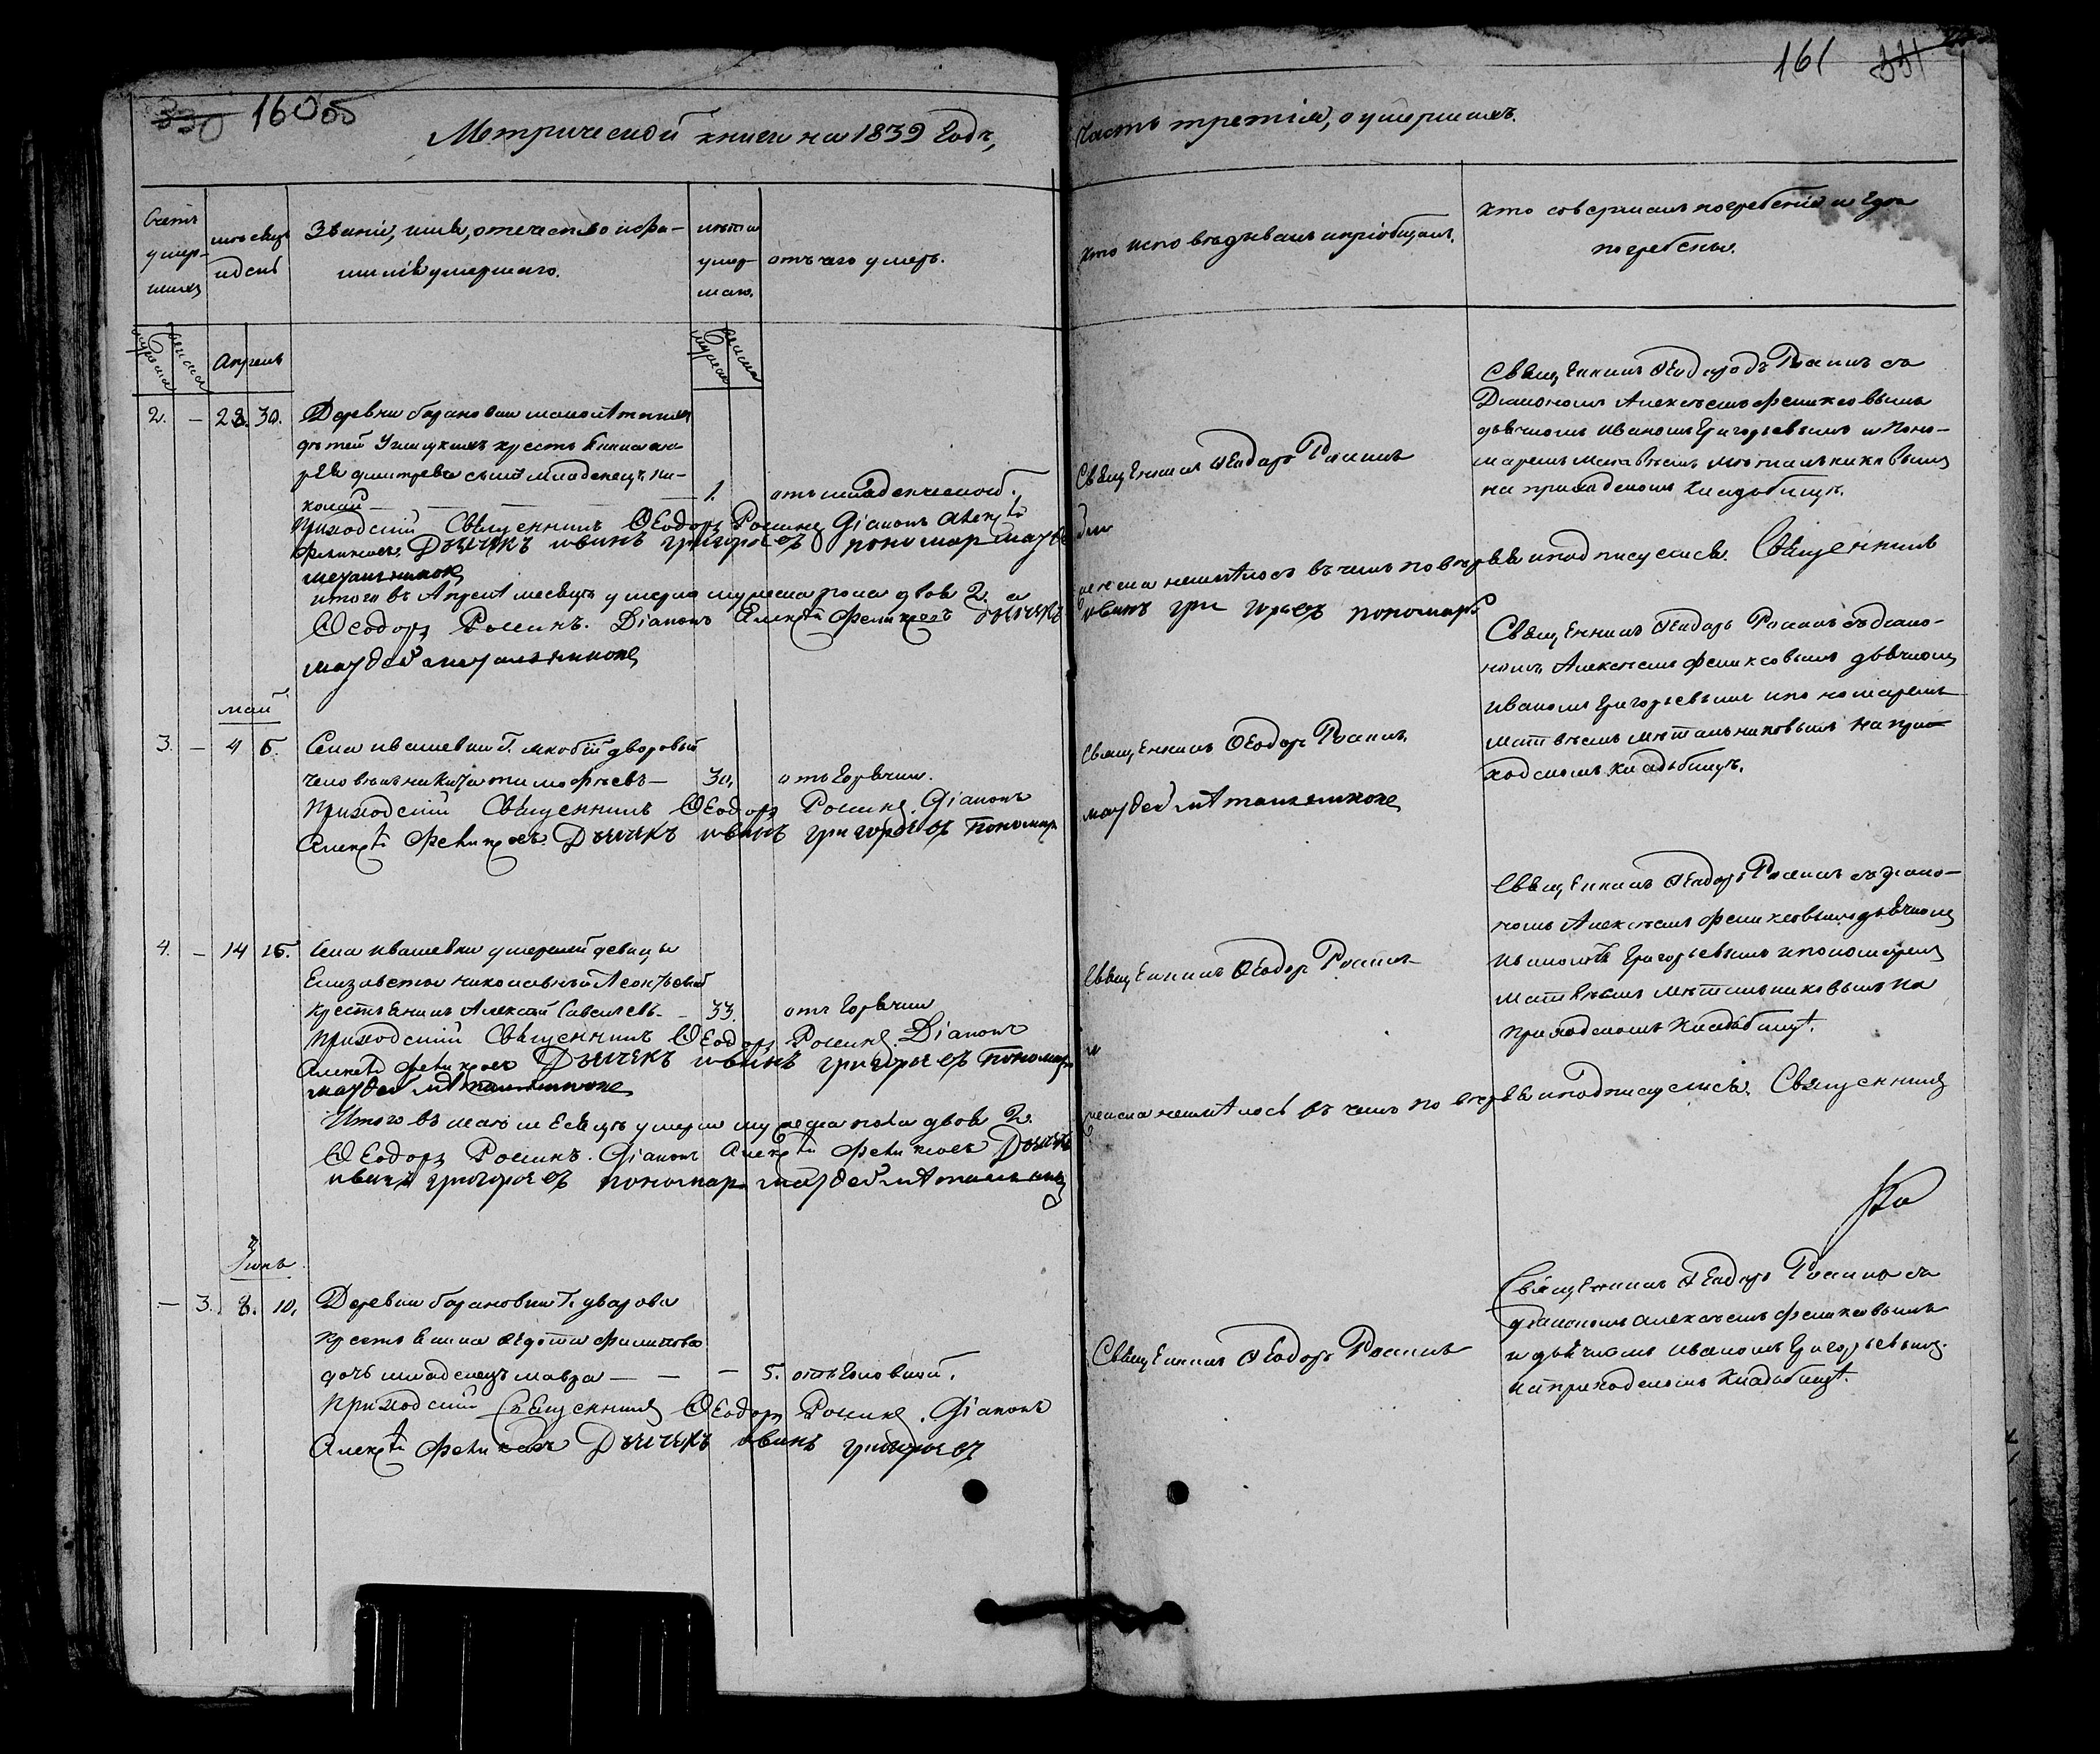 330 160об
Метрической книги на 1839 Годъ,
Счетъ умер-шихъ
мужеска
женска
месяцъ и день
Званіе, имя, отечество и фа-
милія умершаго.
лета умер-шаго.
мужеска
женска
отъ чего умеръ.
Апрель
2. — 28. 30. Деревни Барановки малолетныхъ
детей крестьянина
Дмитрева сынъ младенецъ Ни-
колай — 1. отъ младенческой.
Приходскій Священникъ Феодоръ Росинъ Діаконъ Алексѣй
Феликсовъ Дьячекъ иванъ григорьевъ пономарь матвей
метальников
итого въ Апрелѣ месяцѣ умерло мужеска пола двое 2. а
Феодоръ Росинъ. Діаконъ Алексѣй Феликсовъ дьячекъ
матвей метальников
май
3. — 4 6. Села ивашевки Г. дворовый
человѣкъ никита тимофѣевъ — 30, отъ Горячки.
Приходскій Священникъ Феодоръ Росинъ. Діаконъ
Алексѣй Феликсовъ Дьячекъ иванъ григорьевъ Пономарь
4. — 14 16. Села ивашевки умершей девицы
Елизаветы николавной Леонтьевой
крестьянинъ Алексѣй Савельевъ — 33. отъ Горячки
Приходскій Священникъ Феодоръ Росинъ. Діаконъ
Алексѣй Феликсовъ Дьячекъ иванъ григорьевъ Пономарь
матвей метальников
Итого въ маѣ месяцѣ умерло мужеска пола двое 2.
Феодоръ Росинъ. Діаконъ Алексѣй Феликсовъ Дьячекъ
иванъ григорьевъ пономарь матвей метальников
Іюнь
— 3. 8. 10. Деревни барановки Г. уварова
крестьянина Федота филипова
дочь младенецъ мавра — — — 5. отъ Головной.
Приходскій Священникъ Феодоръ Росинъ. Діаконъ
Алексѣй Феликсовъ Дьячекъ иванъ григорьевъ
161 331
Часть третія, о умершихъ.
Кто исповѣдывалъ и пріобщалъ.
Кто совершалъ погребеніе и Где
погребены.
Священникъ Феодоръ Росинъ
Священникъ Феодоръ Росинъ съ
Діакономъ Алексѣемъ феликсовымъ
дьячкомъ иваномъ Григорьевымъ и Поно-
маремъ матвѣемъ метальниковымъ
на приходскомъ кладбищѣ.
женска неимѣлось въ чемъ по вѣрѣ и подписуемся. Священникъ
иванъ григорьевъ пономарь
Священникъ Феодоръ Росинъ.
матвей метальников
Священникъ Феодоръ Росинъ съ діако-
номъ Алексѣемъ феликсовымъ дьячкомъ
иваномъ Григорьевымъ и пономаремъ
матвѣемъ метальниковымъ на при-
ходскомъ кладбищѣ.
Священникъ Феодоръ Росинъ
Священникъ Феодоръ Росинъ съ діако-
номъ Алексѣемъ феликсовымъ дьячкомъ
иваномъ Григорьевымъ и пономаремъ
матвѣемъ метальниковымъ на
приходскомъ кладбищѣ.
женска неимѣлось въ чемъ по вѣрѣ и подписуемся. Священникъ
Священникъ Феодоръ Росинъ
Священникъ Феодоръ Росинъ съ
діакономъ алексѣемъ феликсовымъ
и дьячкомъ иваномъ Григорьевымъ.
на приходскомъ кладбищѣ.